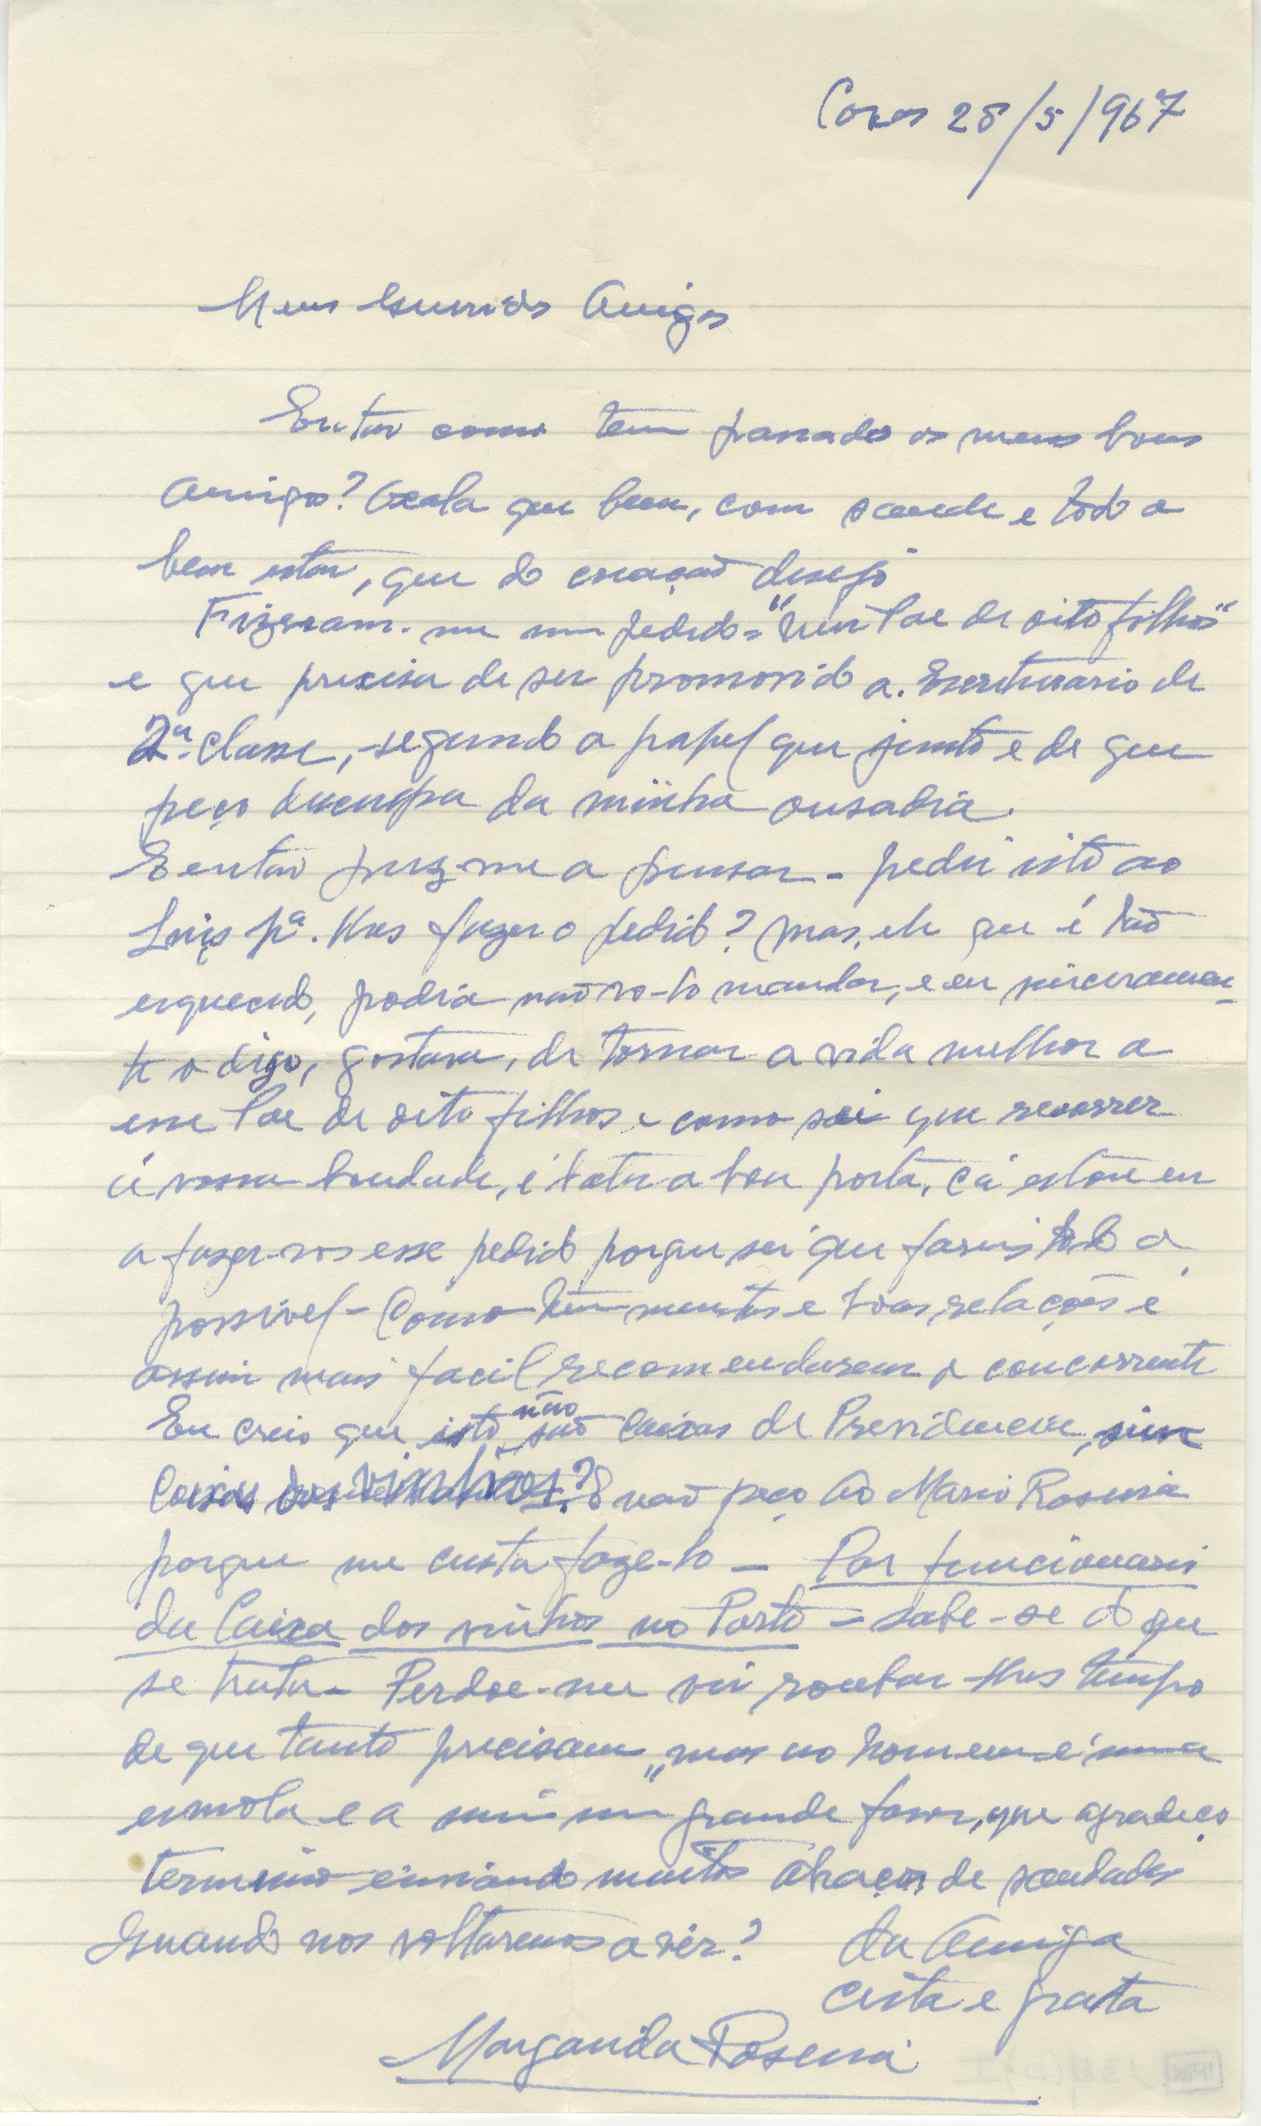 Covas 28/5/967
Meus Queridos Amigos
Então como tem passado os meus bons
Amigos? Oxala que bem, com saude e todo o
bem estar, que do coração desejo
Fizeram-me um pedido = "Um Pae de oito filhos"
e que precisa de ser promovido a. Escriturario de
2ª. classe, segundo o papel que junto e de que
peço desculpa da minha ousadia.
E então puz-me a pensar - pedir isto ao
Luis pª. lhes fazer o pedido? mas, ele que é tão
esquecido, podia não vo-lo mandar, e eu sinceramen-
te o digo, gostava, de tornar a vida melhor a
esse Pae de oito filhos e como sei que recorrer
á vossa bondade, é bater a boa porta, cá estou eu
a fazer-vos esse pedido porque sei que fareis todo o
possivel - Como têm muitas e boas relações é
assim mais facil recomendarem o concorrente
Eu creio que isto não são Caixas de Previdencia, sim
Caixas dos vinhos? E não peço ao Mario Roseira
porque me custa faze-lo - Por funcionarios
da Caixa dos vinhos no Porto = sabe-se do que
se trata - Perdoe-me vir roubar-lhes tempo
de que tanto precisam, mas ao homem é uma
esmola e a mim um grande favor, que agradeço
termino enviando muitos abraços de saudades
Quando nos voltaremos a vêr? da Amiga
certa e grata
Margarida Roseira